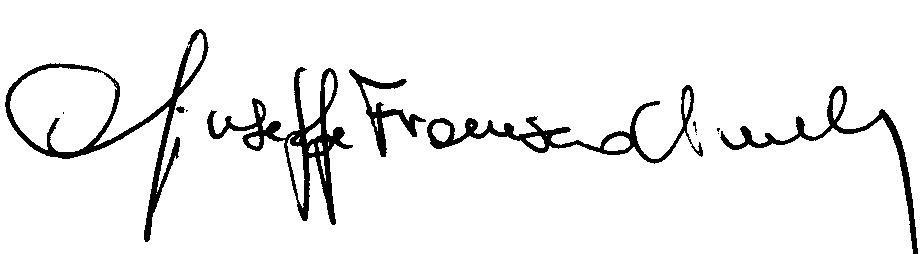 Giuseppe Francesco